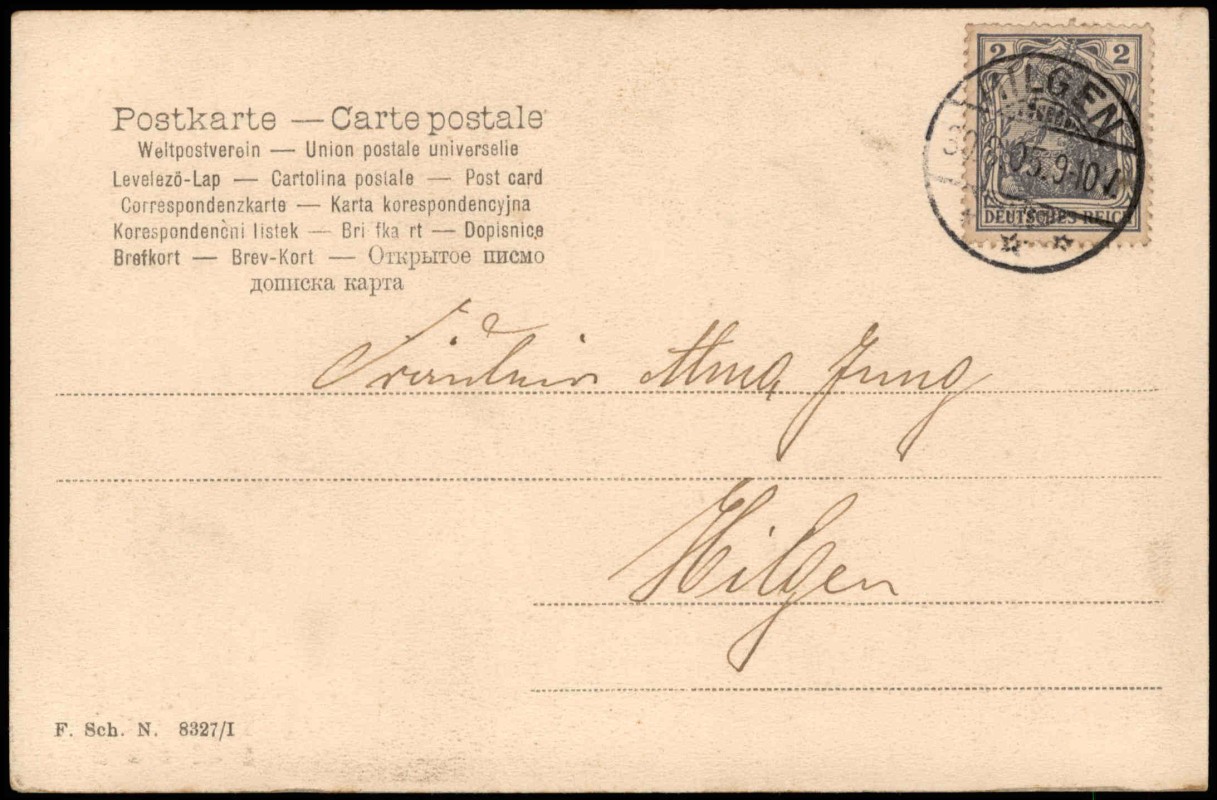 Postkarte — Carte postale
Weltpostverein — Union postale universelle
Levelező-Lap — Cartolina postale — Post card
Correspondenzkarte — Karta korespondencyjna
Korespondenční listek — Bri fka rt — Dopisnice
Brefkort — Brev-Kort — Открытое писмо
дописка карта
2 2
HILGEN
05.9-10V.
DEUTSCHES REICH
Fräulein Alma Jung
Hilgen
F. Sch. N. 8327/I